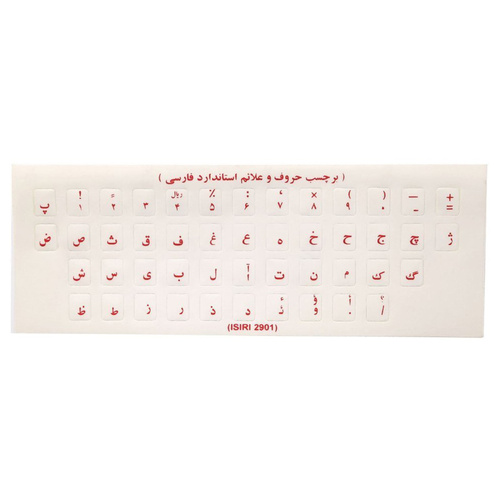 ( برچسب حروف و علائم استاندارد فارسی )
پ ! ۱ ۲ ۳ ریال ۴ ٪ ۵ : ۶ ، ۷ × ۸ ( ۹ ) ۰ — - + =
ض ص ث ق ف غ ع ه خ ح ج چ ژ
ش س ی ب ل آ ا ت ن م ک گ
ظ ط ز ر ذ د ئ ؤ و أ . ؟ /
(ISIRI 2901)